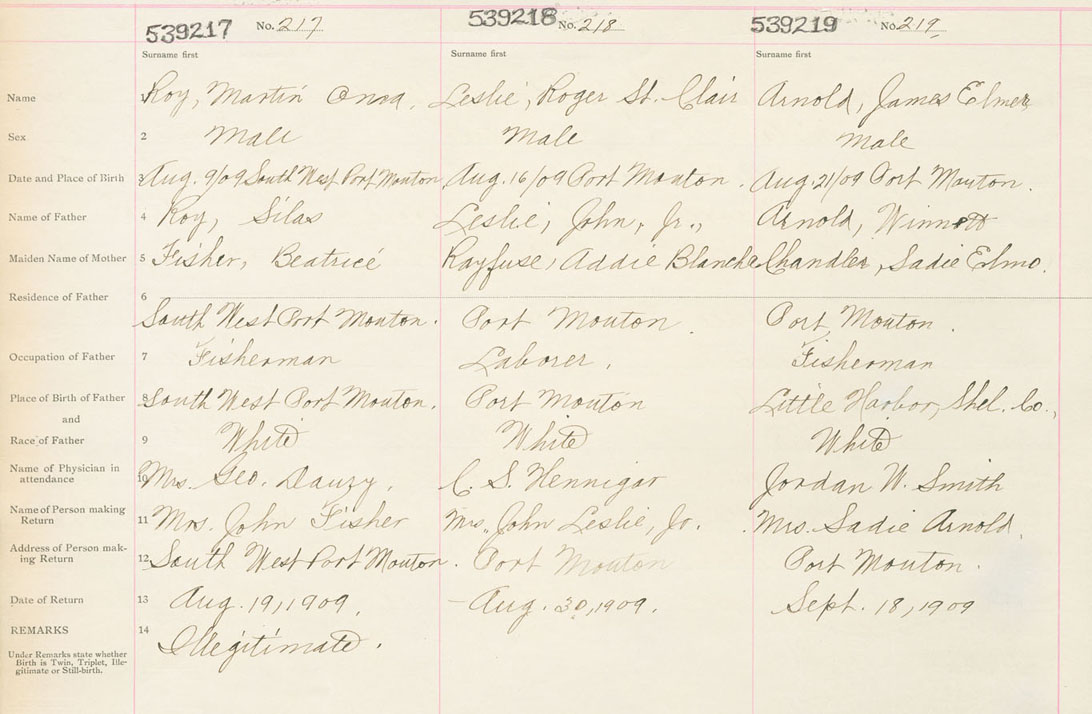 539217 No. 217 539218 No. 218 539219 No. 219
Surname first Surname first Surname first
Name 1 Roy, Martin Leslie, Roger St. Clair Arnold, James Elmer
Sex 2 Male Male Male
Date and Place of Birth 3 Aug. 9/09 South West Port Mouton Aug. 16/09 Port Mouton. Aug 21/09 Port Mouton.
Name of Father 4 Roy, Silas Leslie, John, Jr., Arnold, Winnett
Maiden Name of Mother 5 Fisher, Beatrice Rayfuse, Addie Blanche Chandler, Sadie Elmo.
Residence of Father 6
South West Port Mouton. Port Mouton. Port Mouton.
Occupation of Father 7 Fisherman Laborer. Fisherman
Place of Birth of Father 8 South West Port Mouton. Port Mouton Little Harbor, Shel. Co.,
and
Race of Father 9 White White White
Name of Physician in
attendance 10 Mrs. Geo. Dauzy. C. S. Hennigar Jordan W. Smith
Name of Person making
Return 11 Mrs. John Fisher Mrs. John Leslie, Jr. Mrs. Sadie Arnold.
Address of Person mak-
ing Return 12 South West Port Mouton. Port Mouton Port Mouton.
Date of Return 13 Aug. 19, 1909. Aug. 30, 1909. Sept. 18, 1909
REMARKS 14 Illegitimate.
Under Remarks state whether
Birth is Twin, Triplet, Ille-
gitimate or Still-birth.